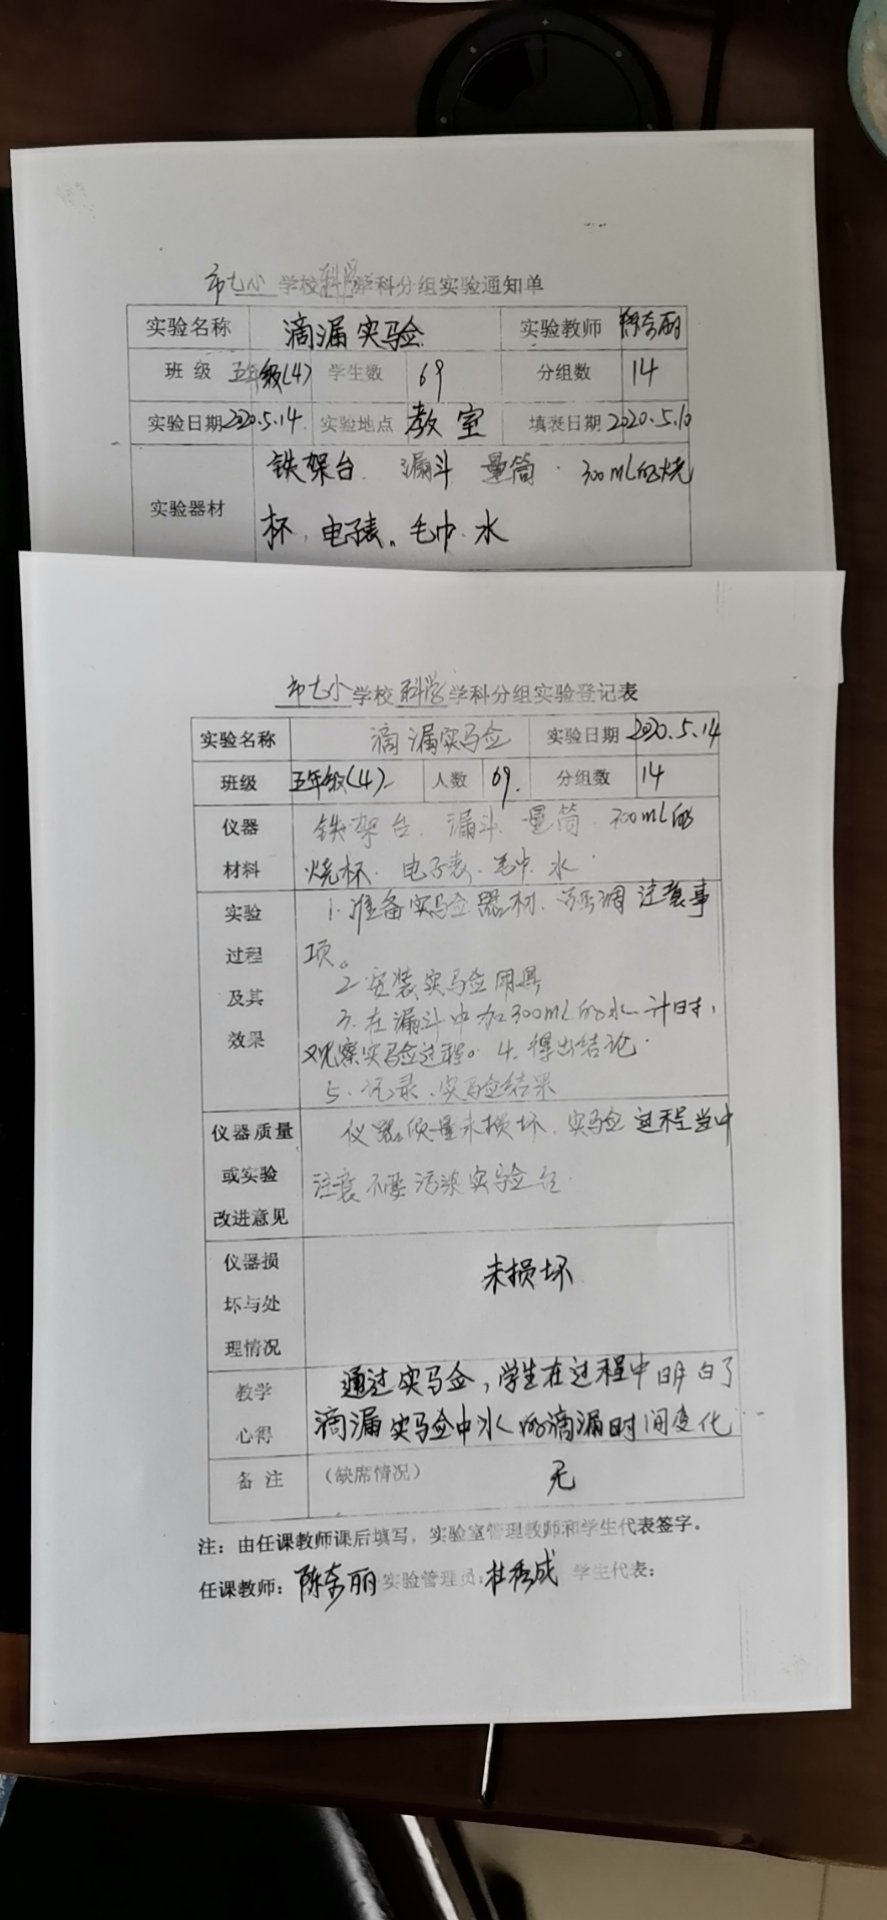 市七小学校科学学科分组实验通知单
实验名称 滴漏实验 实验教师
班级 五年级(4) 学生数 69 分组数 14
实验日期 2020.5.14. 实验地点 教室 填表日期 2020.5.10
铁架台. 漏斗 量筒. 300mL的烧
实验器材
杯. 电子表. 毛巾. 水
市七小学校科学学科分组实验登记表
实验名称 滴漏实验 实验日期 2020.5.14
班级 五年级(4) 人数 69. 分组数 14
仪器 铁架台. 漏斗. 量筒. 300mL的
材料 烧杯. 电子表. 毛巾. 水.
实验 1. 准备实验器材. 强调注意事
过程 项。
2. 安装实验用具
及其 3. 在漏斗中加300mL的水. 计时,
效果 观察实验过程。 4. 得出结论.
5. 记录. 实验结果
仪器质量 仪器质量未损坏. 实验过程当中
或实验 注意不要污染实验台.
改进意见
仪器损
坏与处 未损坏
理情况
教学 通过实验,学生在过程中明白了
心得 滴漏实验中水的滴漏时间变化
备注 (缺席情况) 无
注:由任课教师课后填写,实验室管理教师和学生代表签字。
任课教师: 实验管理员: 学生代表: